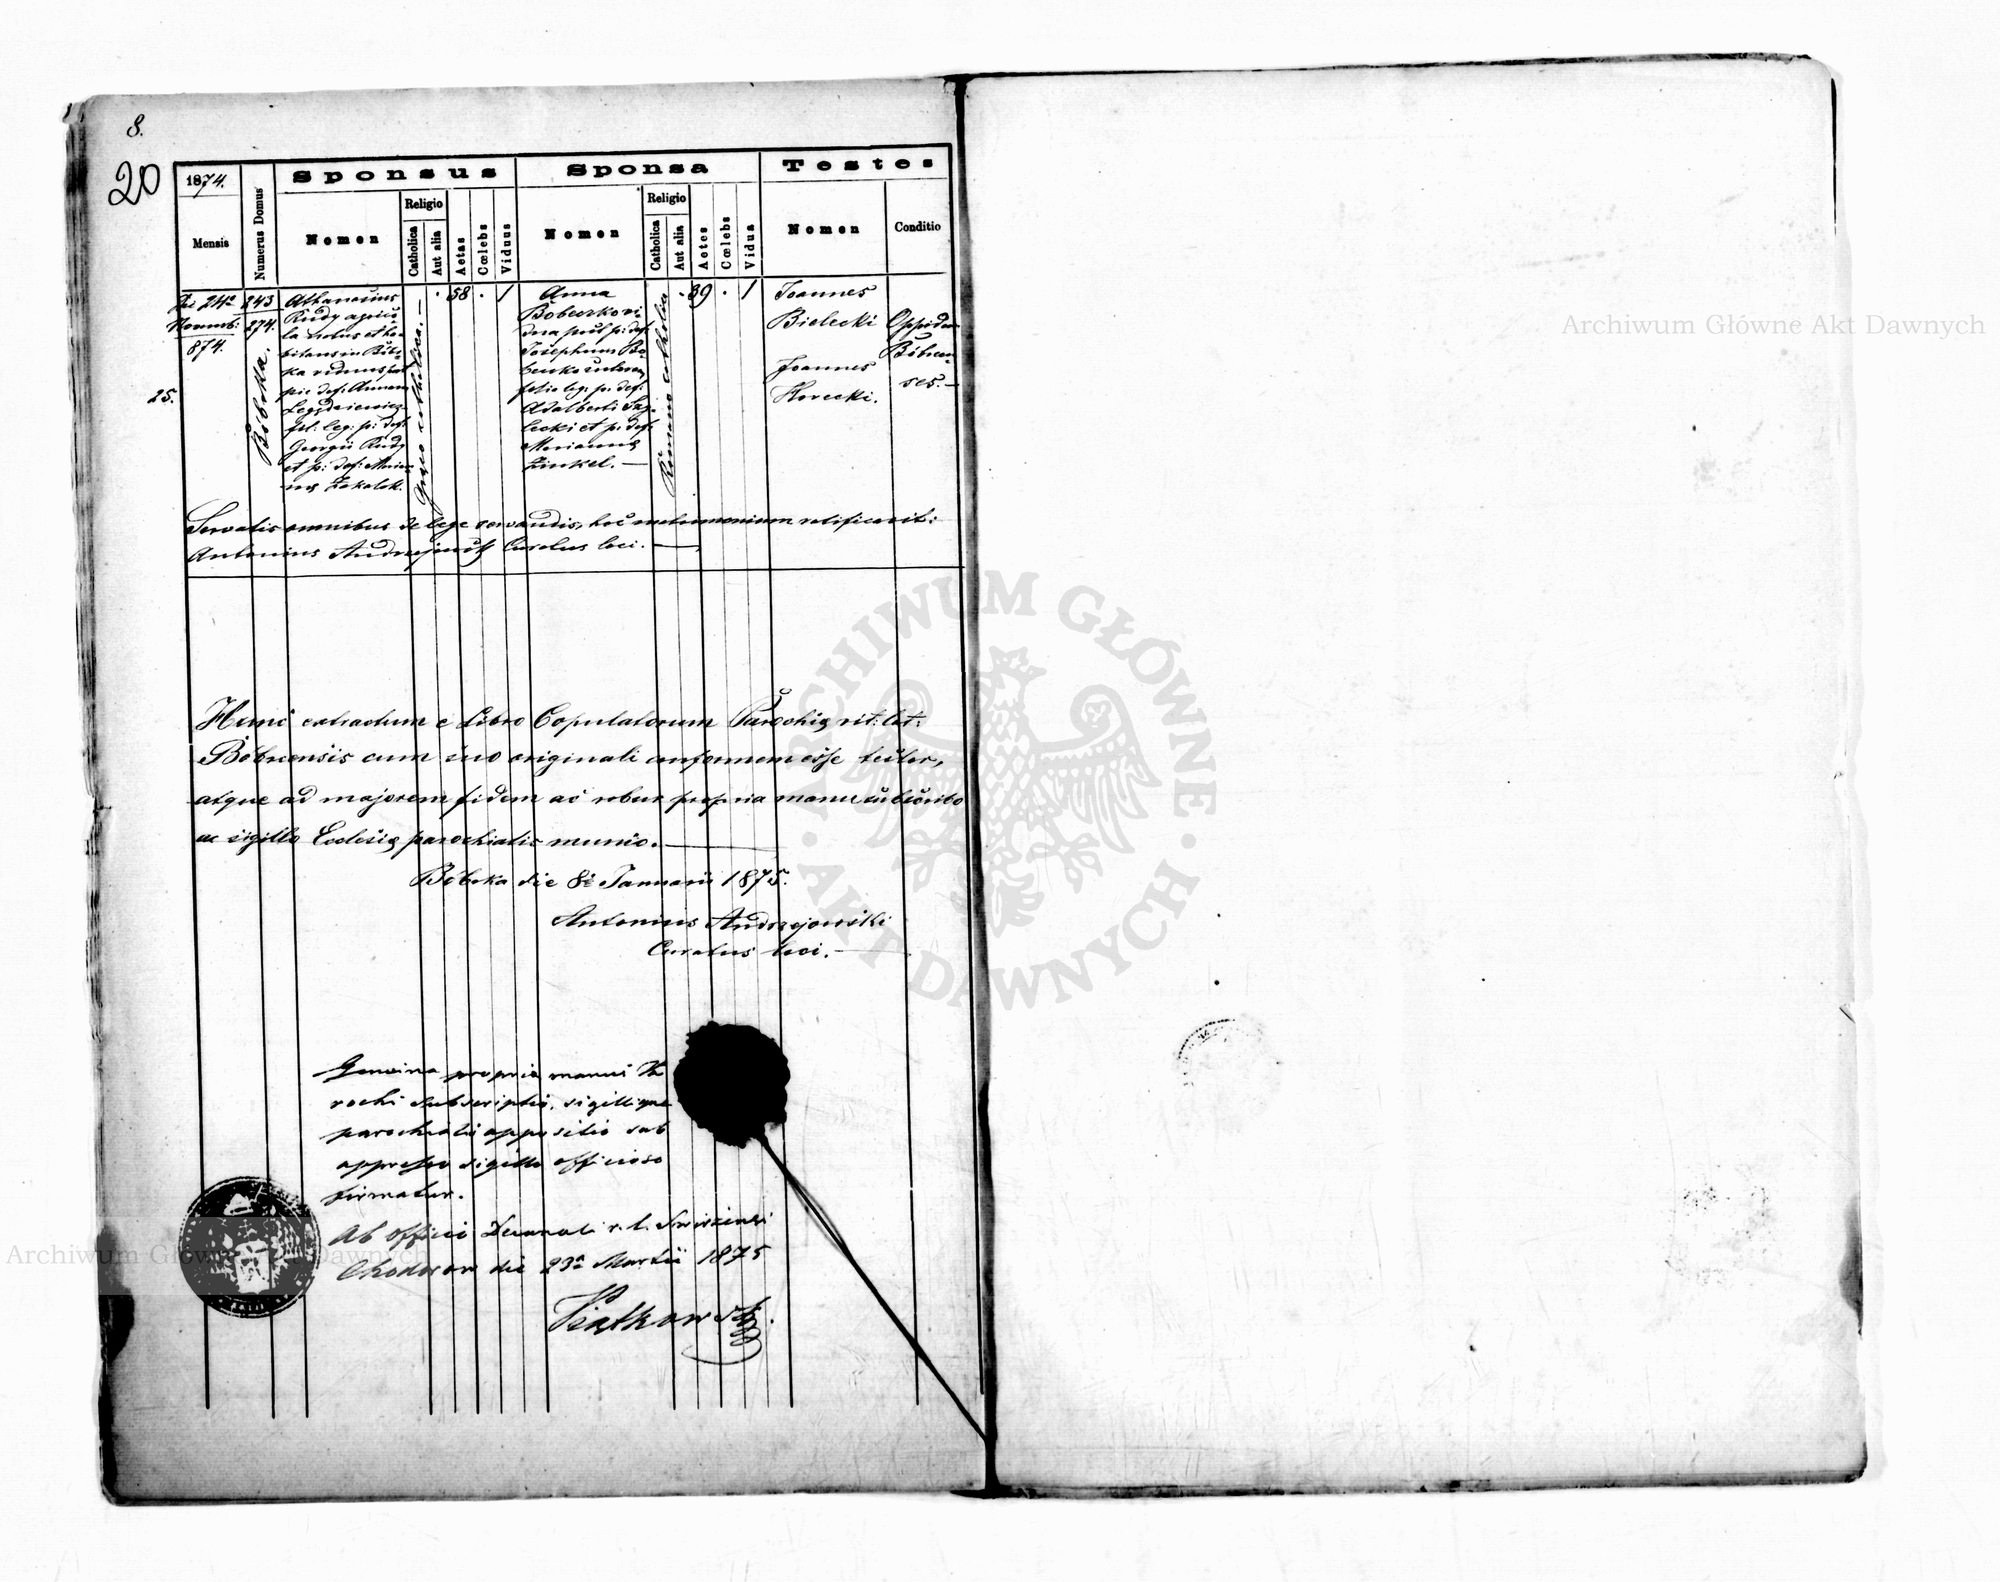 8.
20
1874.
Mensis
Numerus Domus
Sponsus
Nomen
Religio
Catholica
Aut alia
Aetas
Cœlebs
Viduus
Sponsa
Nomen
Religio
Catholica
Aut alia
Aetes
Cœlebs
Vidua
Testes
Nomen
Conditio
25.
Die 24a
Novemb:
874.
243
274.
Bóbrka.
Athanasius
Rudy agrico
la natus et ha
bitans in Bób
ka viduus post
pie def: Annam
fil: leg: p: def:
Georgii Rudy
et p: def: Marian
nae Zakalek.
Graeco catholica.
58 . 1
Anna
Boberkowi
dua post p: def:
Josephum Bo
berko
filia leg: p: def:
Adalberti
lecki et p: def:
Mariannae
Zinkel.
Romano catholica
. 39 . 1
Joannes
Bielecki
Joannes
Horecki.
Oppidani
Bóbrcen
ses.
Servatis omnibus de lege servandis, hoc matrimonium ratificavit:
Antonius Andrzejowski Curatus loci.
Hunc extractum e Libro Copulatorum Parochiae rit: lat:
Bóbrcensis cum suo originali conformem esse testor,
atque ad majorem fidem ac robur propria manu subscribo
ac sigillo Ecclesiae parochialis munio.
Bóbrka die 8e Januarii 1875.
Antonius Andrzejowski
Curatus loci.
Genuina propria manui Pa
rochi subscriptio, sigillique
parochialis appositio sub
appresso sigillo officioso
firmatur.
Ab Officio Decanali r. l. Swirzensi
Chodorow die 23a Martii 1875
Piątkowski
ARCHIWUM GŁÓWNE · AKT DAWNYCH ·
Archiwum Główne Akt Dawnych
Archiwum Główne Akt Dawnych